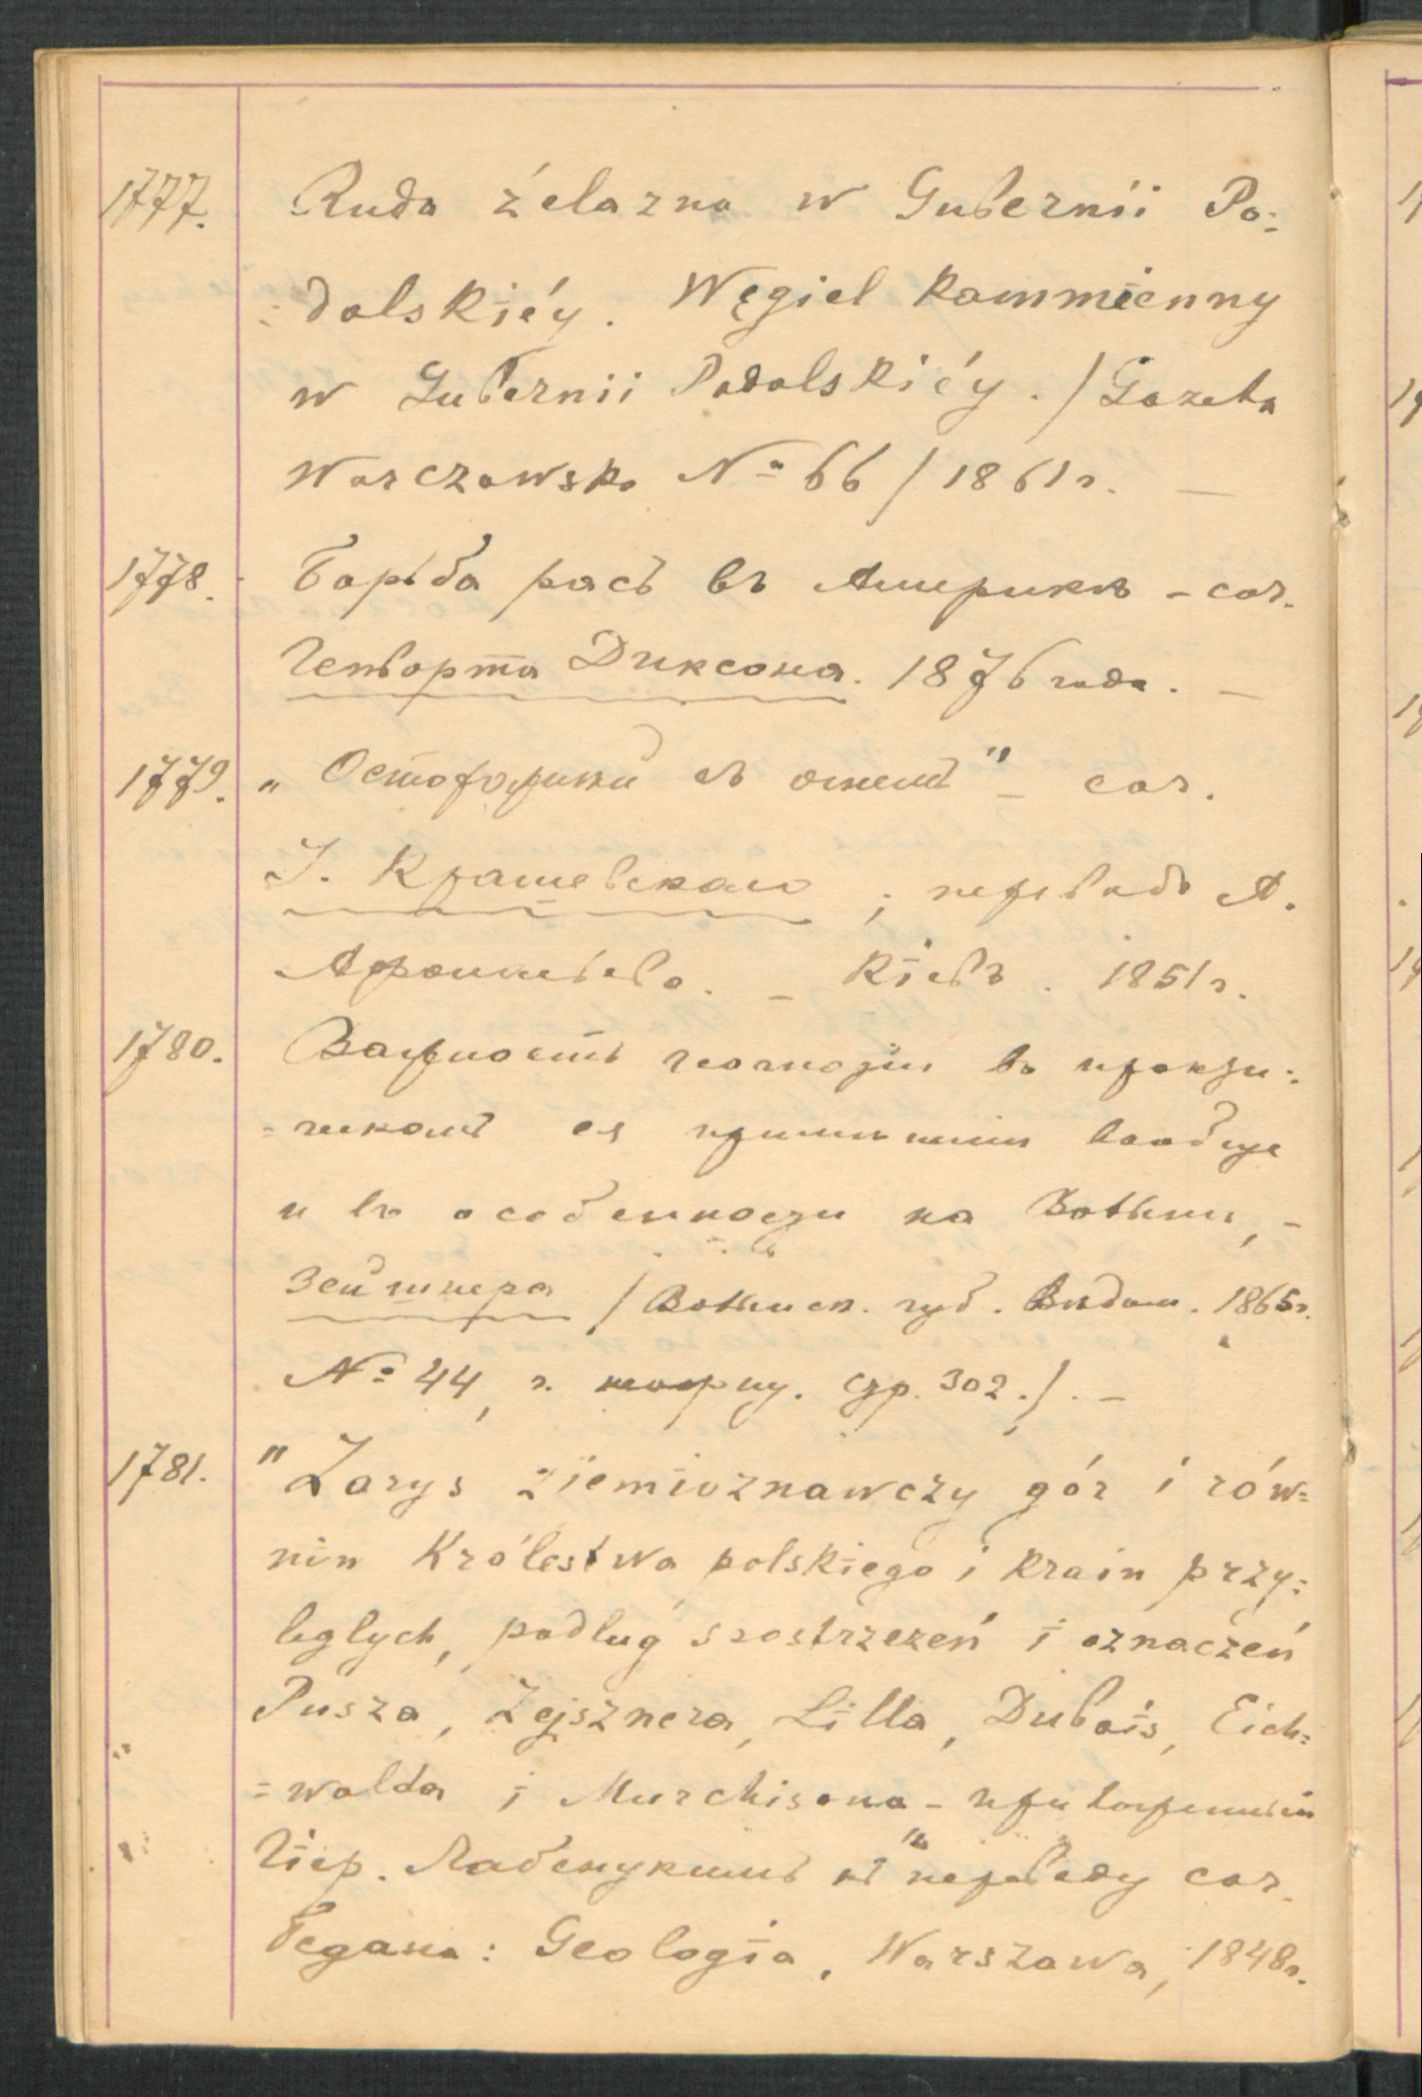 1777. Ruda żelazna w Gubernii Po=
=dolskiéy. Węgiel kammienny
w Gubernii Podolskiéy. / Gazeta
Warczawska № 66 / 1861 г. —
1778. Борьба расъ въ Америкѣ – соч.
Гепворта Диксона. 1876 года. —
1779. „Осторожнѣй съ огнемъ" – соч.
І. Крашевскаго; переводъ А.
– Кіевъ. 1851 г.
1780. Важность геогнозіи въ практи=
=ческомъ ея примѣненіи вообще
и въ особенности на Волыни, –
Зейшнера / Волынск. губ. Вѣдом. 1865 г.
№ 44, г. стр. 302./. –
1781. "Zarys ziemioznawczy gór i rów=
nin Królestwa polskiego i krain przy=
leglych, podlug spostrzezeń i oznaczeń
Pusza, Zejsznera, Lilla, Dubois, Eich=
=walda i Murchisona – приложенный
Гіер. Лабенцкимъ къ" переводу соч.
Бедана: Geologia, Warszawa, 1848 г.